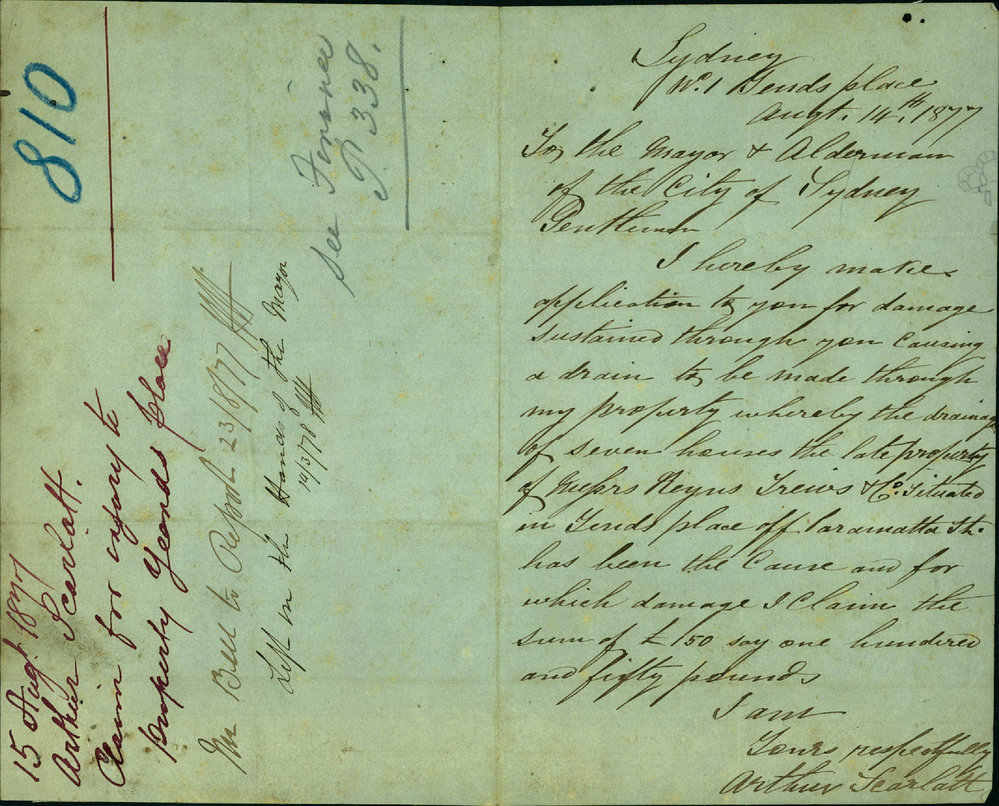 Sydney
No. 1 Yends place
Augt. 14th. 1877
To, the Mayor & Alderman
of the City of Sydney
Gentlemen
I hereby make
application to you for damage
sustained through you Causing
a drain to be made through
my property whereby the drainag
of seven houses the late property
of Messrs Trews & Co. Situated
in Yends place off Paramatta St.
has been the Cause and for
which damage I Claim the
sum of £150 say one hundered
and fifty pounds
I am
Yours respectfully
Arthur Scarlatt
810
15 Augt. 1877
Arthur Scarlatt.
Claim for injury to
property Yeends place
Mr Bell to Report 23/8/77
Left in the Hands of the Mayor
14/3/78
See Finance
P. 338.